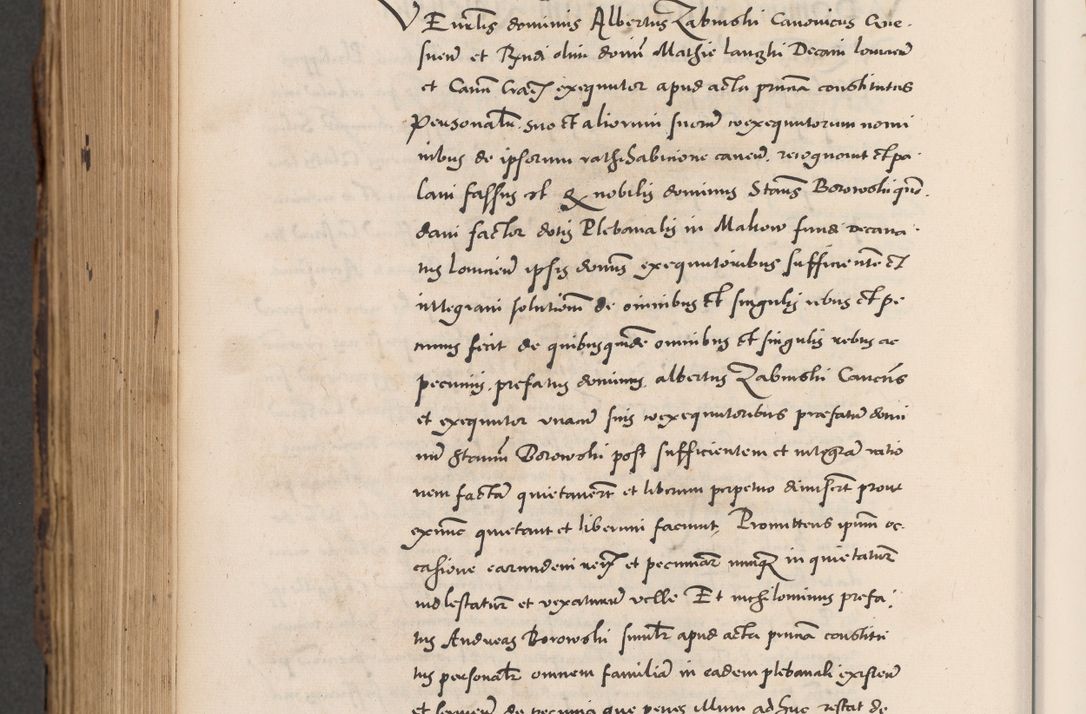 Venerabilis dominus Albertus Zabinski Canonicus Gne-
snen et Rndi olim domini Mathie Langhi Decani lovicien
et Canon Crac exequutor apud acta pnia constitutus
Personalr suo et aliorum suorum coexequutorum nomi
nibus de ipsorum rathihabicione caven recognovit et pa-
lam fassus est Q nobilis dominus Stans Borowski quon-
dam factor dotis Plebanalis in Makow fundi decana-
tus lovicien ipsis dominis exequutoribus sufficientem et
integram solutionem de omnibus et singulis rebus et pe
cuniis fecit de quibusquidem omnibus et singulis rebus ac
pecuniis prefatus dominus albertus Zabinski Canonicus
et exequutor unacum suis coexequutoribus prefatum domi
num Stanm Borowski post sufficientem et integram ratio
nem factam quietavert et liberum perpetuo dimisert prout
exnunc quietant et liberum faciunt, Promittens ipsum oc-
casione earundem rerum et pecuniarum nunquam inquietaturum
molestaturum et vexaturum velle Et nichilominus prefa-
tus Andreas Borowski similr apud acta pnia constitu
tus personalr omnem familiam in eadem plebanali existen
et servien de pecunia que penes illum adhuc restat de